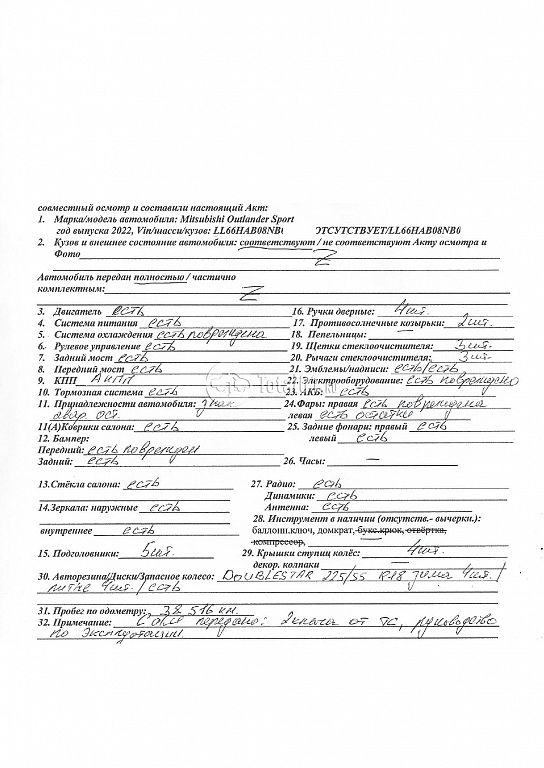 совместный осмотр и составили настоящий Акт:
1. Марка/модель автомобиля: Mitsubishi Outlander Sport
год выпуска 2022, Vin/шасси/кузов: LL66HAB08NB0 ОТСУТСТВУЕТ/LL66HAB08NB0
2. Кузов и внешнее состояние автомобиля: соответствуют / не соответствуют Акту осмотра и
Фото
Автомобиль передан полностью / частично
комплектным:
3. Двигатель есть
16. Ручки дверные: 4шт.
4. Система питания есть
17. Противосолнечные козырьки: 2шт.
5. Система охлаждения есть повреждена
18. Пепельницы: —
6. Рулевое управление есть
19. Щетки стеклоочистителя: 3шт.
7. Задний мост есть
20. Рычаги стеклоочистителя: 3шт.
8. Передний мост есть
21. Эмблемы/надписи: есть/есть
9. КПП АКПП
22. Электрооборудование: есть повреждено
10. Тормозная система есть
23. АКБ: есть
11. Принадлежности автомобиля: знак
авар ост.
24.Фары: правая есть повреждена
левая есть
11(А)Коврики салона: есть
25. Задние фонари: правый есть
левый есть
12. Бампер:
Передний: есть поврежден
Задний: есть
26. Часы: —
13.Стёкла салона: есть
27. Радио: есть
Динамики: есть
14.Зеркала: наружные есть
Антенна: есть
28. Инструмент в наличии (отсутств.- вычеркн.):
внутреннее есть
баллонн.ключ, домкрат, букс.крюк, отвёртка,
компрессор,
15. Подголовники: 5шт.
29. Крышки ступиц колёс: 4шт.
декор. колпаки —
30. Авторезина/Диски/Запасное колесо: DOUBLESTAR 225/55 R18 зима 4шт./
литые 4шт./есть
31. Пробег по одометру: 38 516 км.
32. Примечание: Также передано: 2ключа от ТС, руководство
по эксплуатации